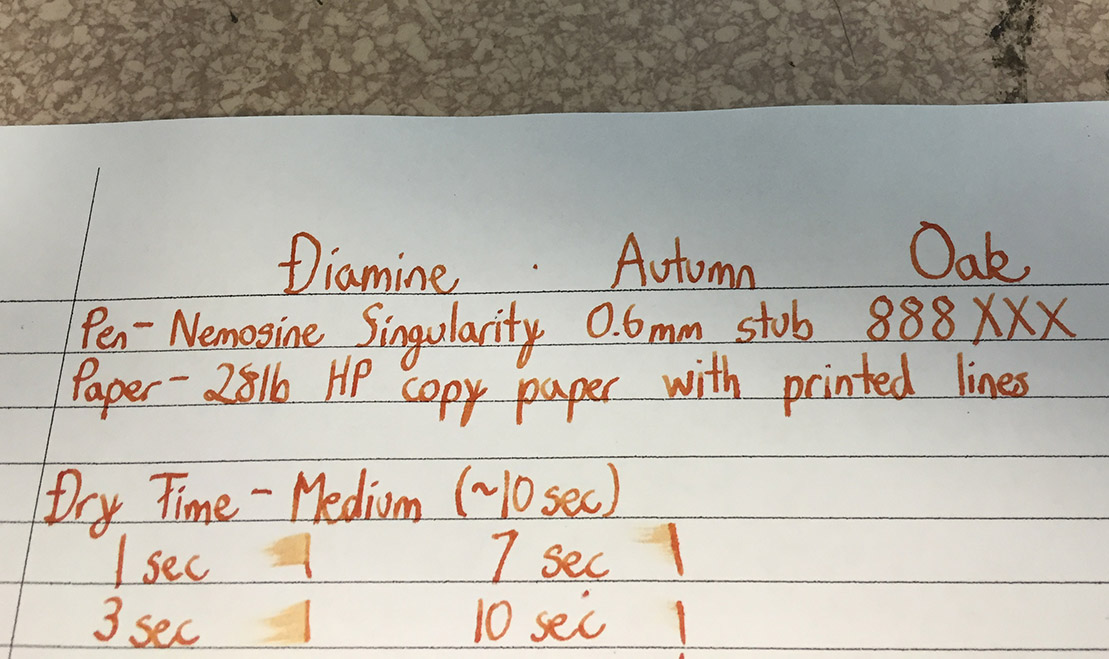 Diamine Autumn Oak
Pen- Nemosine Singularity 0.6mm stub 888 XXX
Paper- 28lb HP copy paper with printed lines
Dry Time - Medium (~10 sec)
1 sec 7 sec
3 sec 10 sec